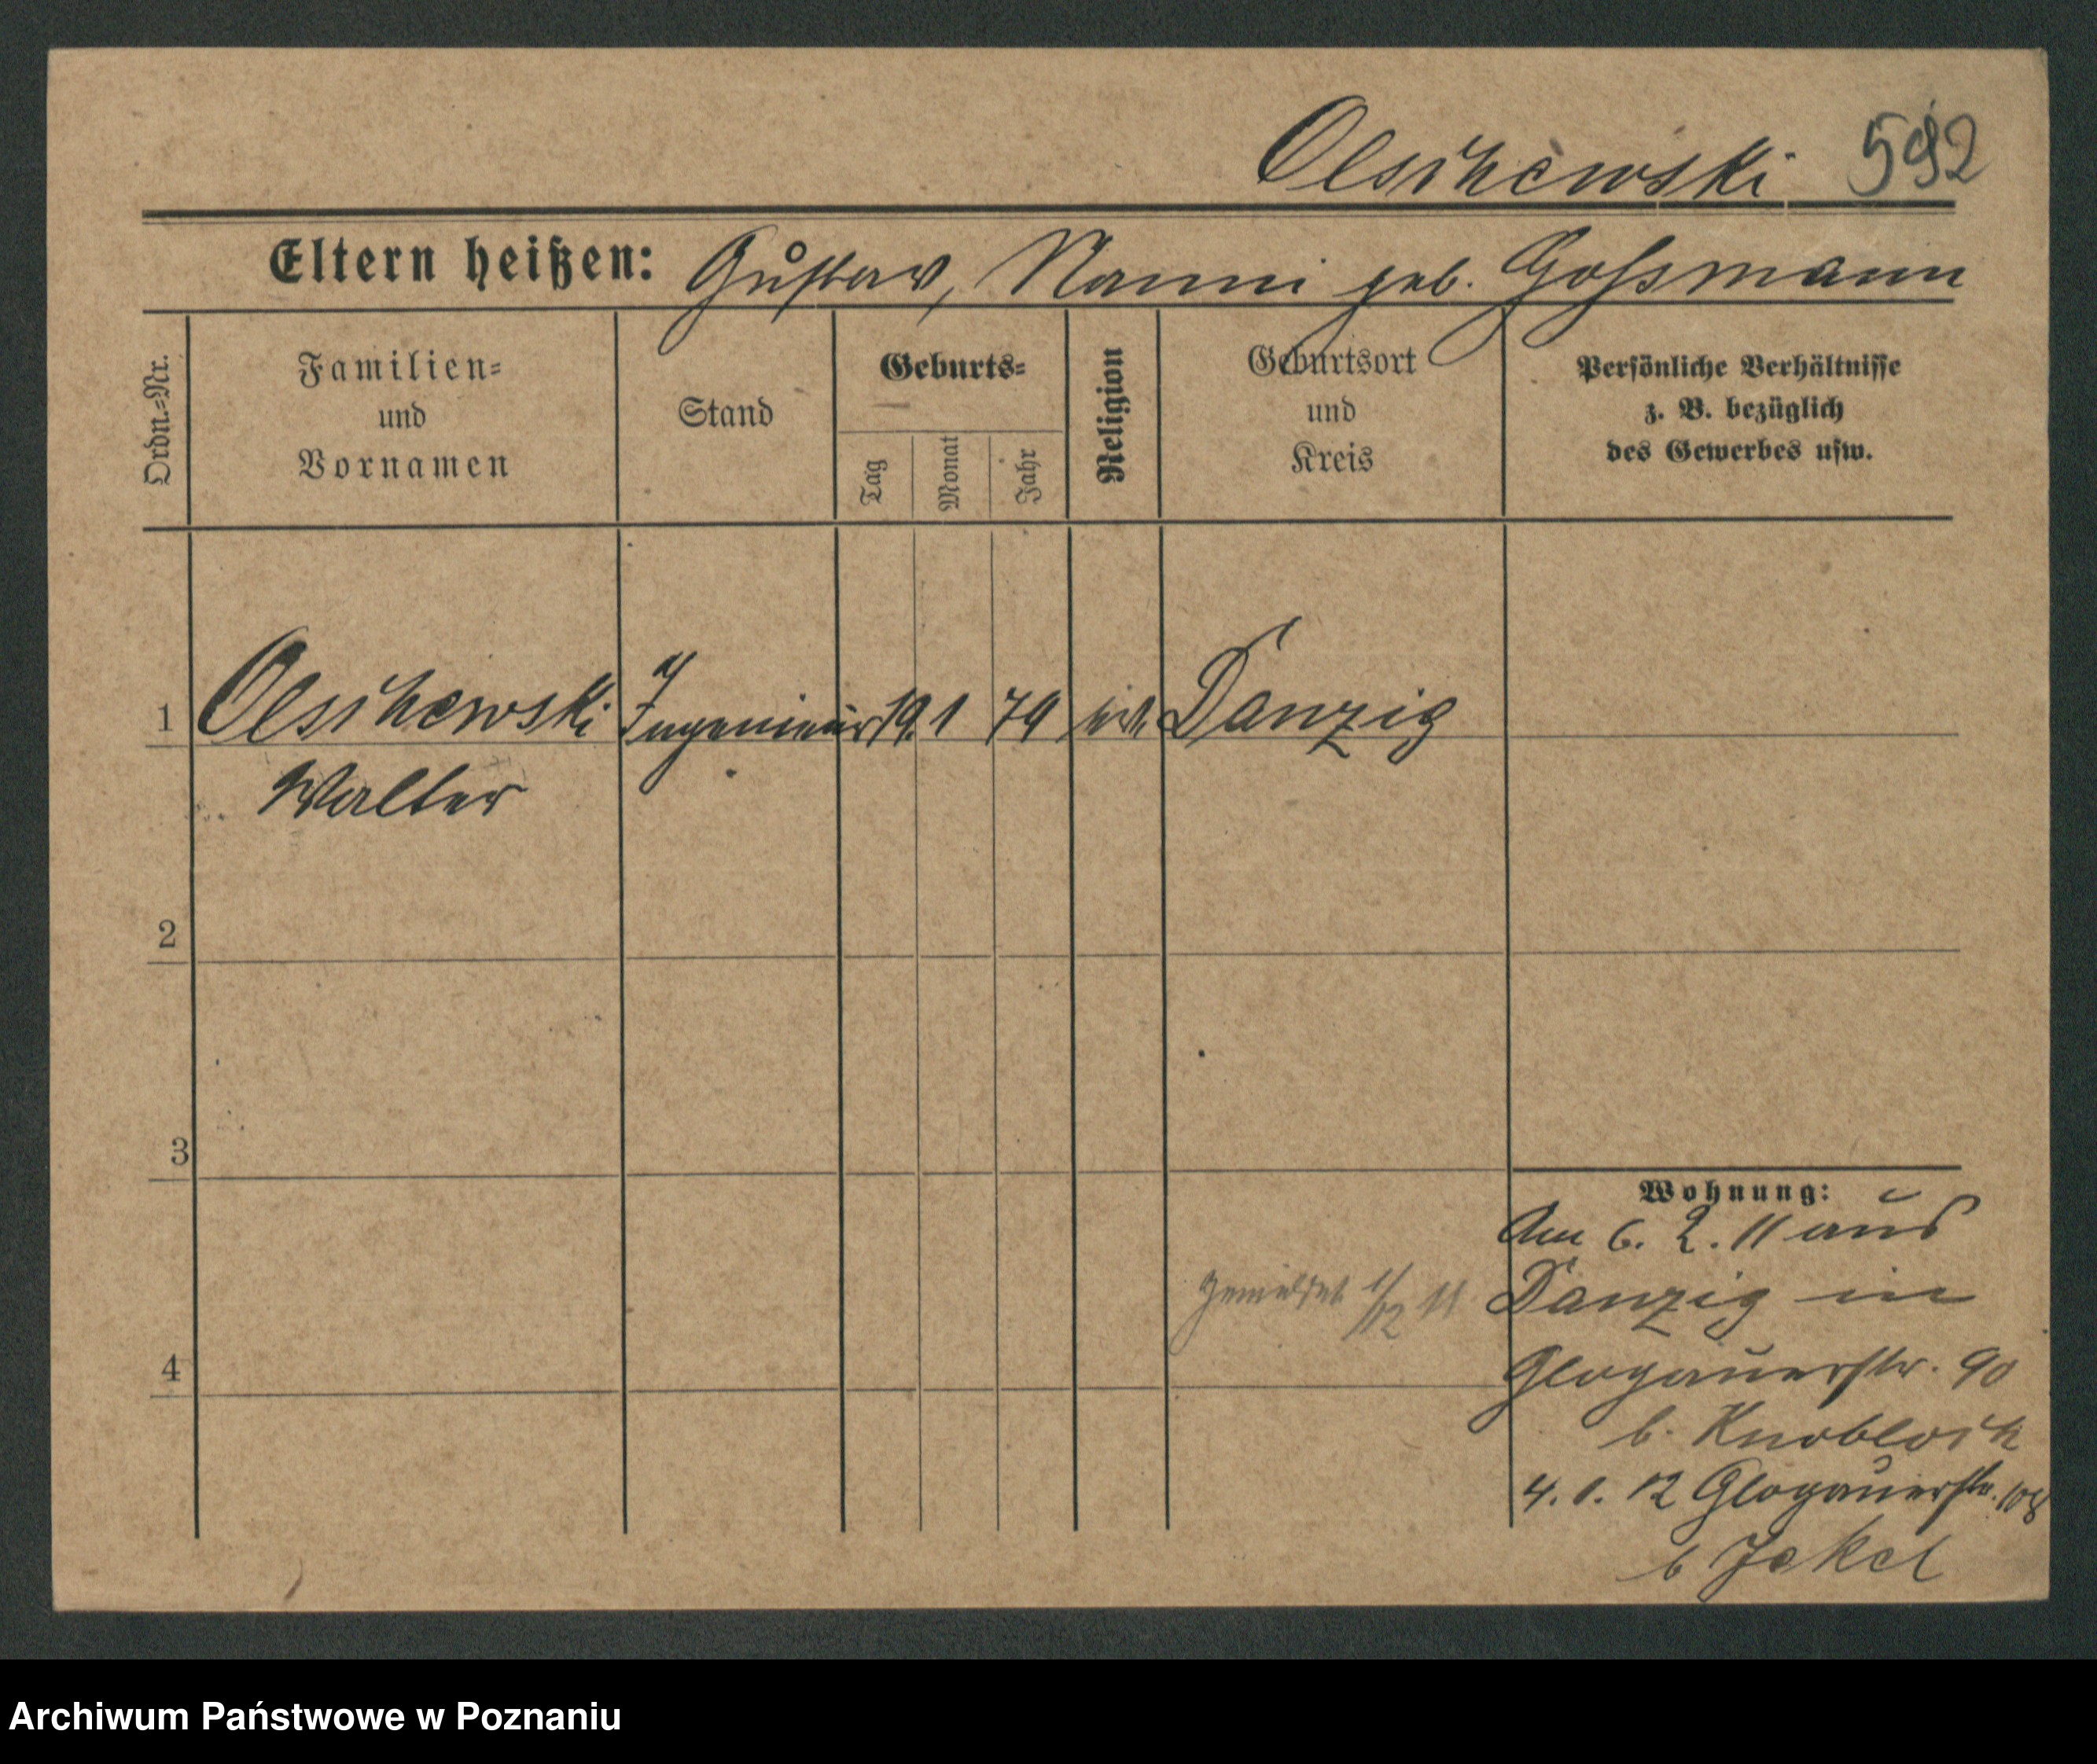 Olschewski 592
Eltern heißen: Gustav, Nanni geb. Gossmann
Ordn.=Nr.
Familien=
und
Vornamen
Stand
Geburts=
Tag
Monat
Jahr
Religion
Geburtsort
und
Kreis
Persönliche Verhältnisse
z. B. bezüglich
des Gewerbes usw.
1 Olschewski Ingenieur 19. 1 79 Danzig
Walter
2
3
Wohnung:
Am 6. 2. 11 aus
gemeldet 1/12 11 Danzig in
4 Glogauerstr. 90
b. Knobloch
4. 1. 12 Glogauerstr. 108
b Jekel
Archiwum Państwowe w Poznaniu